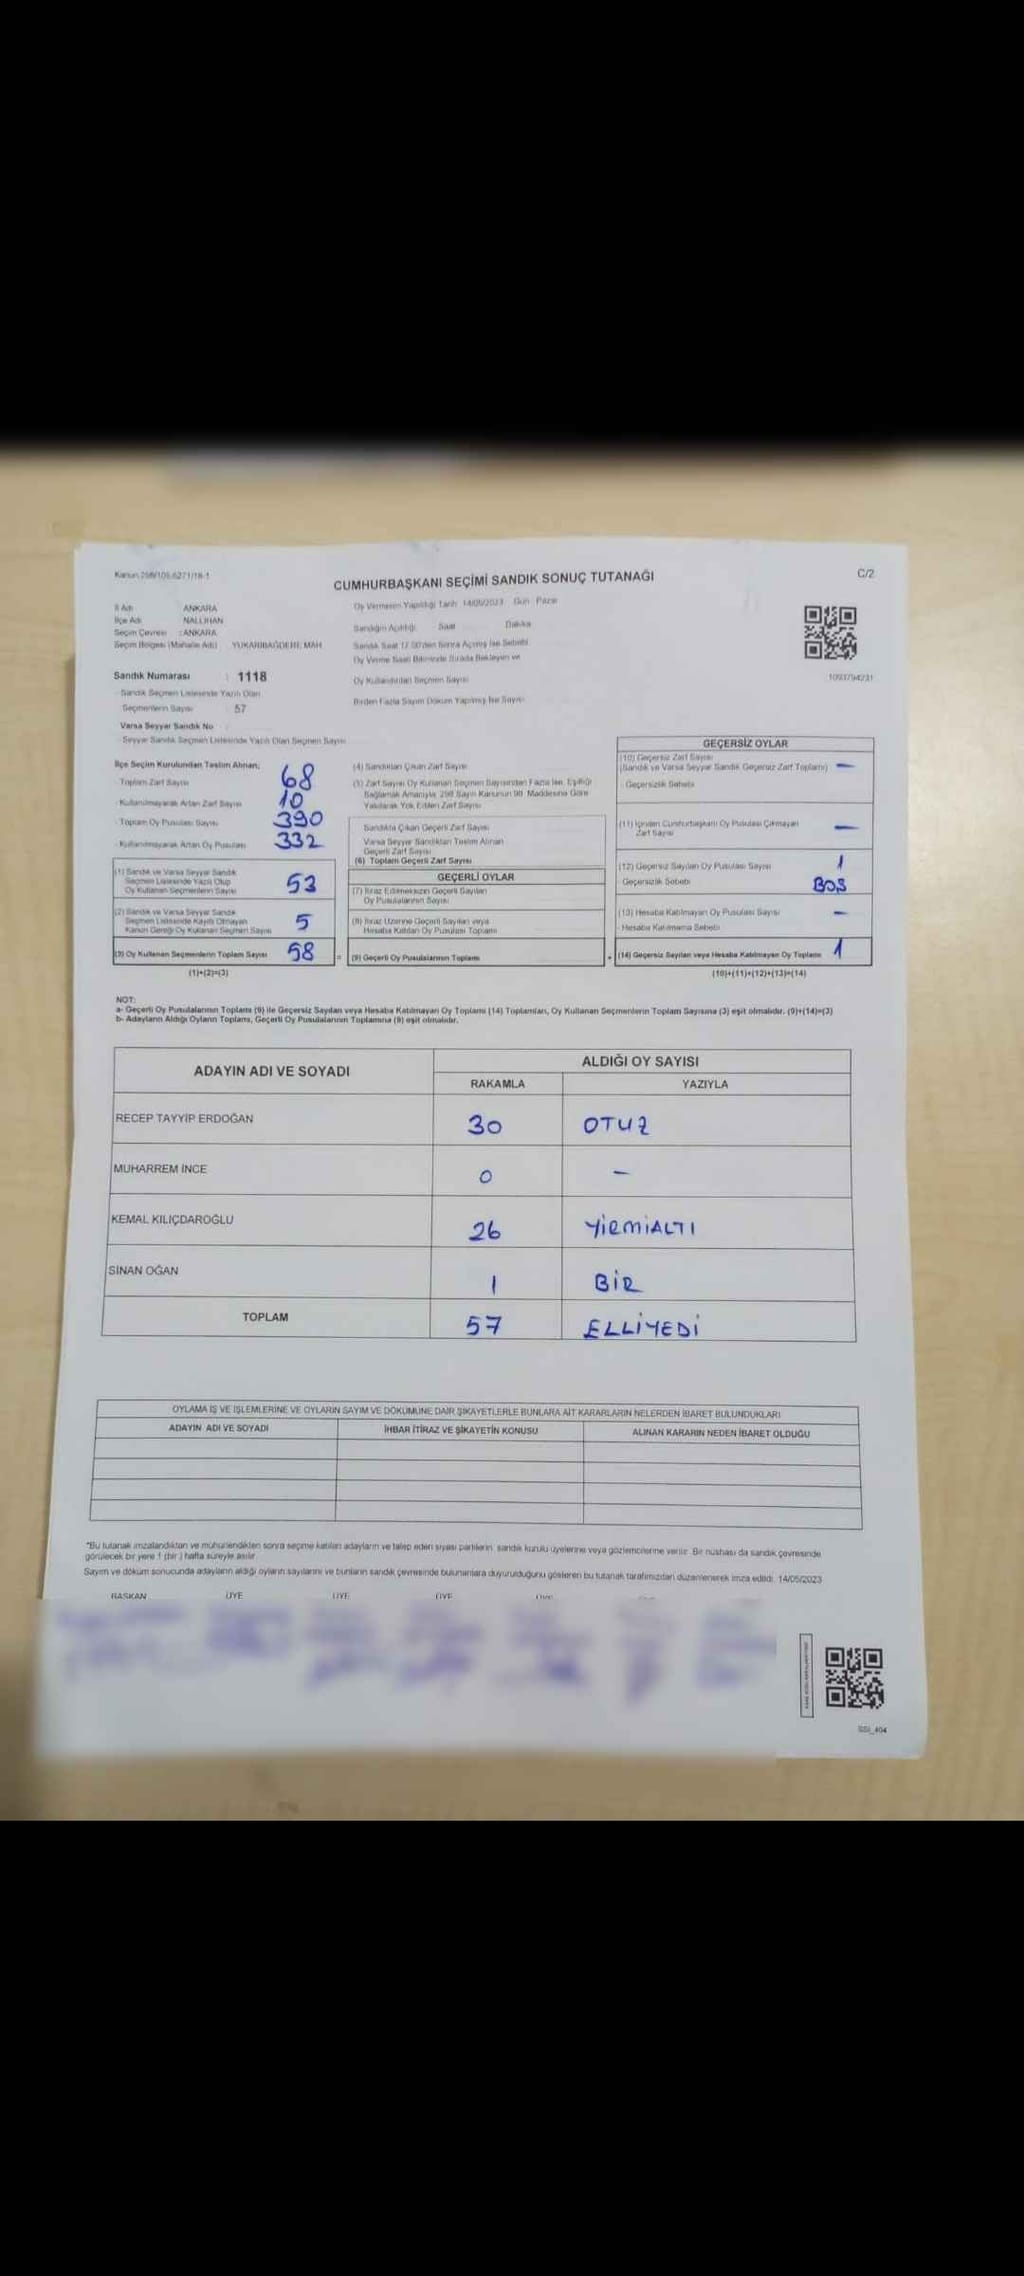 Kanun 298/105,6271/18-1
CUMHURBAŞKANI SEÇİMİ SANDIK SONUÇ TUTANAĞI
C/2
İl Adı ANKARA
İlçe Adı NALLIHAN
Seçim Çevresi : ANKARA
Seçim Bölgesi (Mahalle Adı) YUKARIBAĞDERE MAH.
Sandık Numarası : 1118
Sandık Seçmen Listesinde Yazılı Olan
Seçmenlerin Sayısı 57
Varsa Seyyar Sandık No
Seyyar Sandık Seçmen Listesinde Yazılı Olan Seçmen Sayısı
Oy Vermenin Yapıldığı Tarih 14/05/2023 Gün Pazar
Sandığın Açıldığı Saat Dakika
Sandık Saat 17.00'den Sonra Açılmış İse Sebebi
Oy Verme Saati Bitiminde Sırada Bekleyen ve
Oy Kullandırılan Seçmen Sayısı
Birden Fazla Sayım Döküm Yapılmış İse Sayısı
1093794231
İlçe Seçim Kurulundan Teslim Alınan;
Toplam Zarf Sayısı 68
Kullanılmayarak Artan Zarf Sayısı 10
Toplam Oy Pusulası Sayısı 390
Kullanılmayarak Artan Oy Pusulası 332
(1) Sandık ve Varsa Seyyar Sandık
Seçmen Listesinde Yazılı Olup
Oy Kullanan Seçmenlerin Sayısı 53
(2) Sandık ve Varsa Seyyar Sandık
Seçmen Listesinde Kayıtlı Olmayan
Kanun Gereği Oy Kullanan Seçmen Sayısı 5
(3) Oy Kullanan Seçmenlerin Toplam Sayısı 58 =
(1)+(2)=(3)
(4) Sandıktan Çıkan Zarf Sayısı
(5) Zarf Sayısı Oy Kullanan Seçmen Sayısından Fazla İse, Eşitliği
Sağlamak Amacıyla, 298 Sayılı Kanunun 98. Maddesine Göre
Yakılarak Yok Edilen Zarf Sayısı
Sandıkta Çıkan Geçerli Zarf Sayısı
Varsa Seyyar Sandıktan Teslim Alınan
Geçerli Zarf Sayısı
(6) Toplam Geçerli Zarf Sayısı
GEÇERLİ OYLAR
(7) İtiraz Edilmeksizin Geçerli Sayılan
Oy Pusulalarının Sayısı
(8) İtiraz Üzerine Geçerli Sayılan veya
Hesaba Katılan Oy Pusulası Toplamı
(9) Geçerli Oy Pusulalarının Toplamı +
GEÇERSİZ OYLAR
(10) Geçersiz Zarf Sayısı
(Sandık ve Varsa Seyyar Sandık Geçersiz Zarf Toplamı) —
Geçersizlik Sebebi
(11) İçinden Cumhurbaşkanı Oy Pusulası Çıkmayan
Zarf Sayısı —
(12) Geçersiz Sayılan Oy Pusulası Sayısı 1
Geçersizlik Sebebi BOŞ
(13) Hesaba Katılmayan Oy Pusulası Sayısı —
Hesaba Katılmama Sebebi
(14) Geçersiz Sayılan veya Hesaba Katılmayan Oy Toplamı 1
(10)+(11)+(12)+(13)=(14)
NOT:
a- Geçerli Oy Pusulalarının Toplamı (9) ile Geçersiz Sayılan veya Hesaba Katılmayan Oy Toplamı (14) Toplamları, Oy Kullanan Seçmenlerin Toplam Sayısına (3) eşit olmalıdır. (9)+(14)=(3)
b- Adayların Aldığı Oyların Toplamı, Geçerli Oy Pusulalarının Toplamına (9) eşit olmalıdır.
ADAYIN ADI VE SOYADI ALDIĞI OY SAYISI
RAKAMLA YAZIYLA
RECEP TAYYİP ERDOĞAN 30 OTUZ
MUHARREM İNCE 0 —
KEMAL KILIÇDAROĞLU 26 YİRMİALTI
SİNAN OĞAN 1 BİR
TOPLAM 57 ELLİYEDİ
OYLAMA İŞ VE İŞLEMLERİNE VE OYLARIN SAYIM VE DÖKÜMÜNE DAİR ŞİKAYETLERLE BUNLARA AİT KARARLARIN NELERDEN İBARET BULUNDUKLARI
ADAYIN ADI VE SOYADI İHBAR İTİRAZ VE ŞİKAYETİN KONUSU ALINAN KARARIN NEDEN İBARET OLDUĞU
*Bu tutanak imzalandıktan ve mühürlendikten sonra seçime katılan adayların ve talep eden siyasi partilerin sandık kurulu üyelerine veya gözlemcilerine verilir. Bir nüshası da sandık çevresinde
görülecek bir yere 1 (bir ) hafta süreyle asılır.
Sayım ve döküm sonucunda adayların aldığı oyların sayılarını ve bunların sandık çevresinde bulunanlara duyurulduğunu gösteren bu tutanak tarafımızdan düzenlenerek imza edildi. 14/05/2023
BAŞKAN ÜYE ÜYE ÜYE
SSI_404